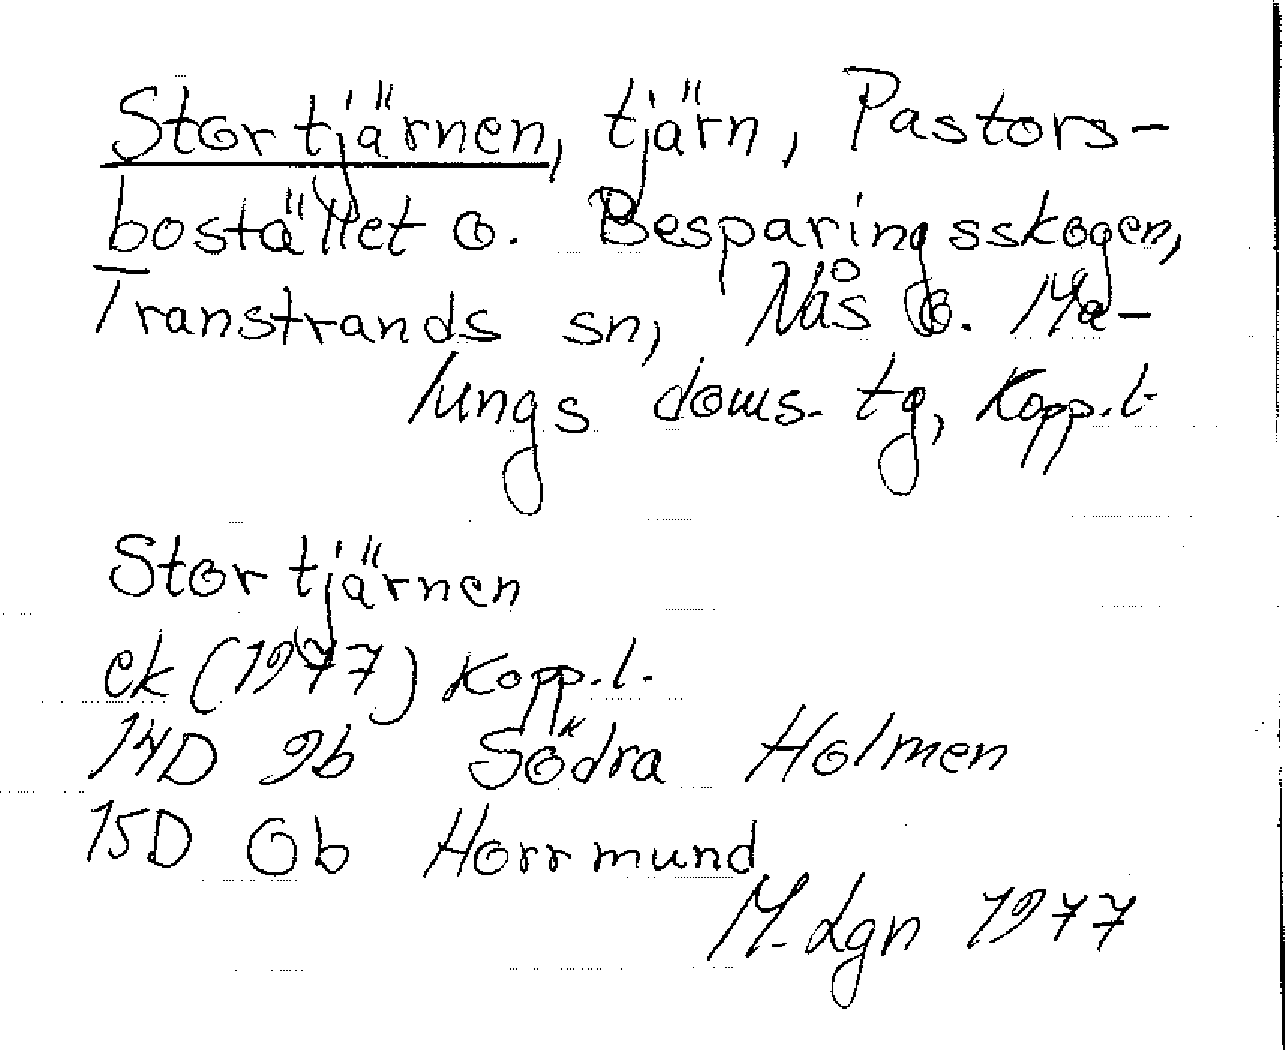 Stortjärnen, tjärn, Pastors-
bostället o. Besparingsskogen,
Transtrands sn, Nås o. Ma-
lungs doms. tg, Kopp.l.
Stortjärnen
ek (1977) Kopp.l.
14D 9b Södra Holmen
15D 0b Horrmund
M. Lgn 1977